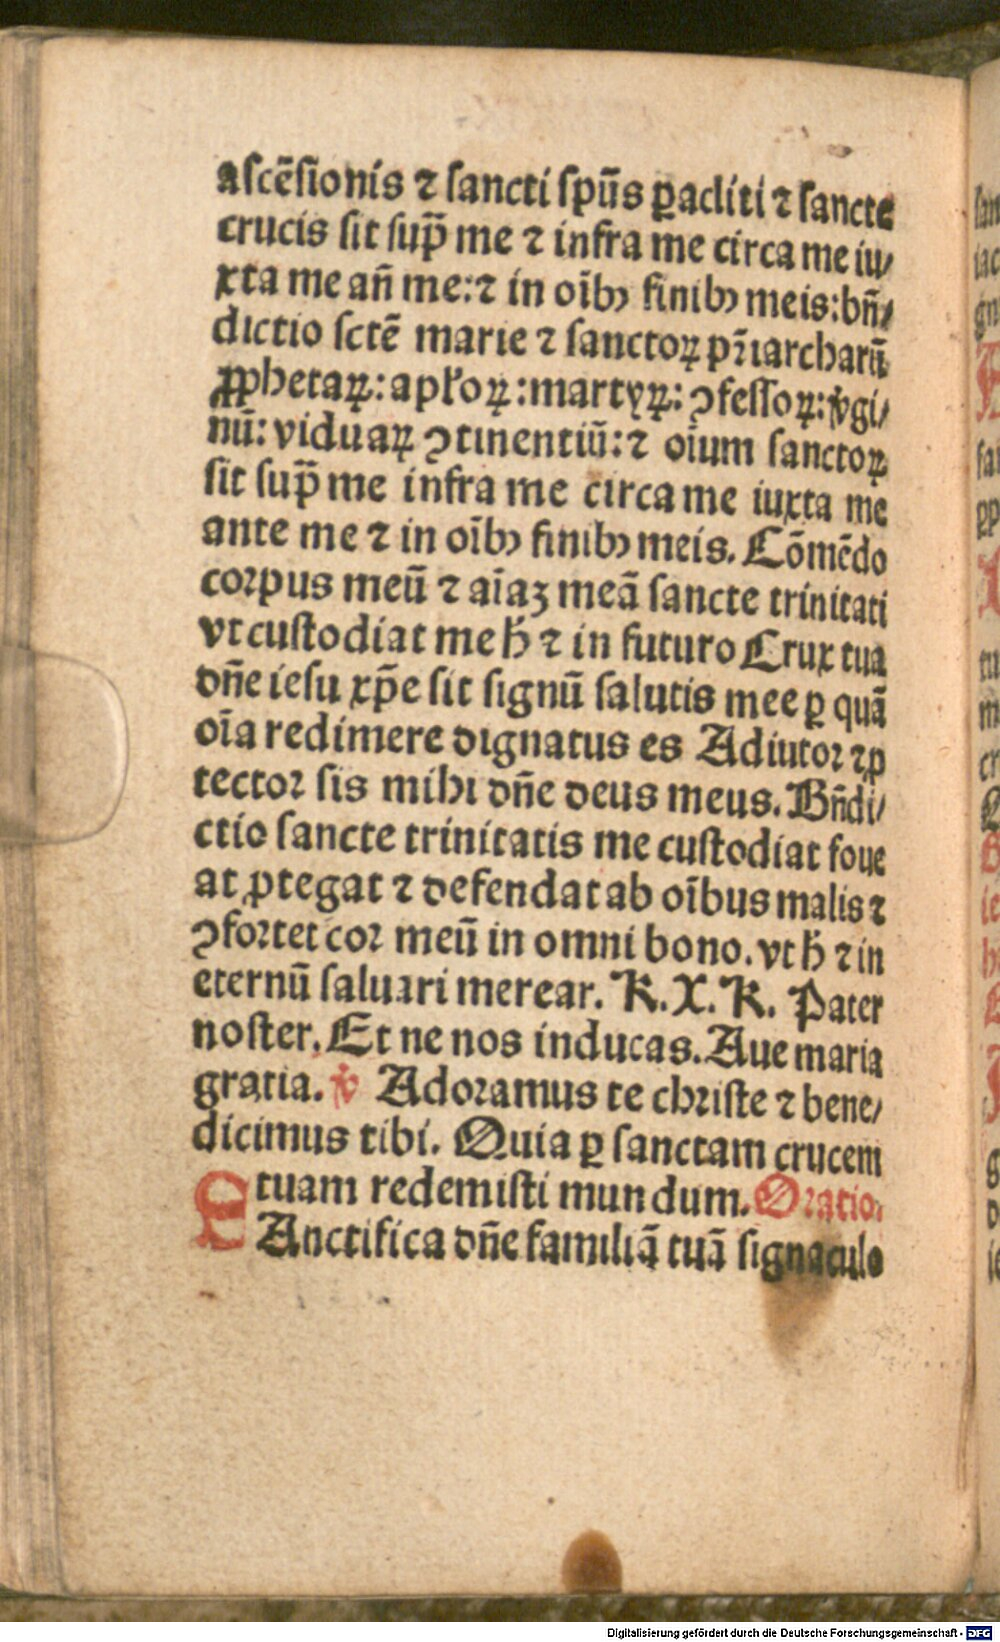 aſcēſionis ⁊ ſancti ſpūs ꝑacliti ⁊ ſancte
crucis ſit ſup̄ me ⁊ infra me circa me iu/
xta me an̄ me:⁊ in oībꝰ finibꝰ meis:bn̄/
dictio ſctē marie ⁊ ſanctoꝝ pr̄iarcharū
ꝓphetaꝝ: apl'oꝝ:martyꝝ: ꝯfeſſoꝝ:v̄gi/
nū: viduaꝝ ꝯtinentiū:⁊ oīum ſanctoꝝ
ſit ſup̄ me infra me circa me iuxta me
ante me ⁊ in oībꝰ finibꝰ meis. Cōmēdo
corpus meū ⁊ aīaꝫ meā ſancte trinitati
vt cuſtodiat me h̄ ⁊ in futuro Crux tua
dn̄e ieſu xp̄e ſit ſignū ſalutis mee ꝑ quā
oīa redimere dignatus es Adiutor ⁊ ꝓ
tector ſis mihi dn̄e deus meus. Bn̄di/
ctio ſancte trinitatis me cuſtodiat foue
at ꝓtegat ⁊ defendat ab oībus malis ⁊
ꝯfortet cor meū in omni bono. vt h̄ ⁊ in
eternū ſaluari merear. K. X. K. Pater
noſter. Et ne nos inducas. Aue maria
gratia. ℣ Adoramus te chriſte ⁊ bene/
dicimus tibi. Quia ꝑ ſanctam crucem
tuam redemiſti mundum. Oratio.
SAnctifica dn̄e familiā tuā ſignaculo
Digitalisierung gefördert durch die Deutsche Forschungsgemeinschaft - DFG